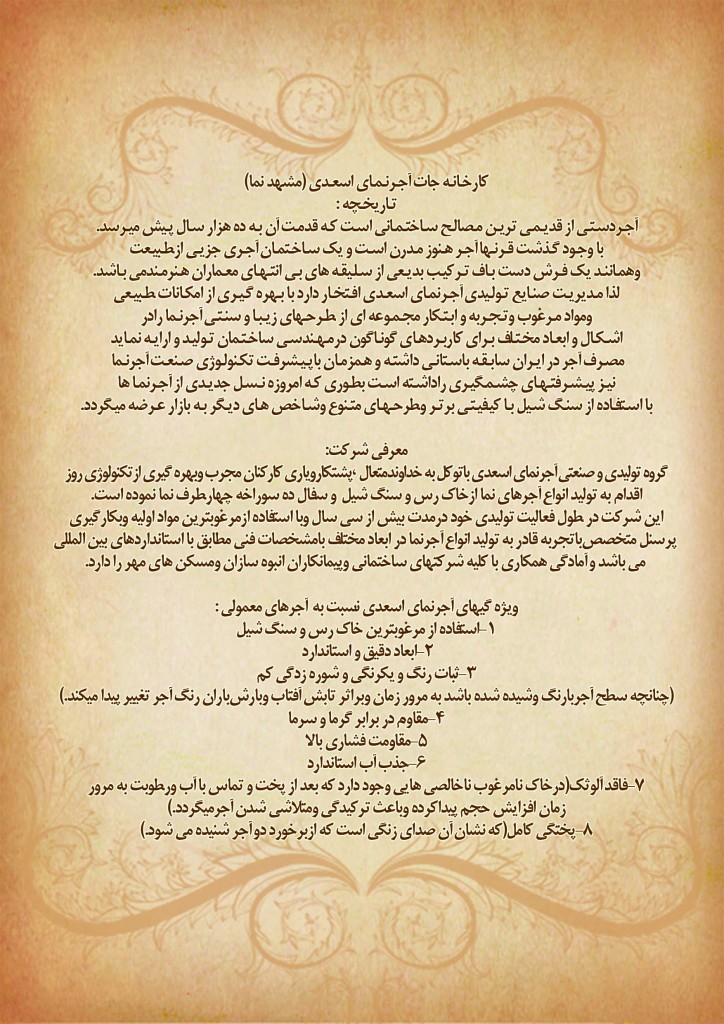 کارخانه جات آجرنمای اسعدی (مشهد نما)
تاریخچه :
آجردستی از قدیمی ترین مصالح ساختمانی است که قدمت آن به ده هزار سال پیش میرسد.
با وجود گذشت قرنها آجر هنوز مدرن است و یک ساختمان آجری جزیی ازطبیعت
وهمانند یک فرش دست باف ترکیب بدیعی از سلیقه های بی انتهای معماران هنرمندمی باشد.
لذا مدیریت صنایع تولیدی آجرنمای اسعدی افتخار دارد با بهره گیری از امکانات طبیعی
ومواد مرغوب وتجربه و ابتکار مجموعه ای از طرحهای زیبا و سنتی آجرنما رادر
اشکال و ابعاد مختلف برای کاربردهای گوناگون درمهندسی ساختمان تولید و ارایه نماید
مصرف آجر در ایران سابقه باستانی داشته و همزمان باپیشرفت تکنولوژی صنعت آجرنما
نیز پیشرفتهای چشمگیری راداشته است بطوری که امروزه نسل جدیدی از آجرنما ها
با استفاده از سنگ شیل با کیفیتی برتر وطرحهای متنوع وشاخص های دیگر به بازار عرضه میگردد.
معرفی شرکت:
گروه تولیدی و صنعتی آجرنمای اسعدی باتوکل به خداوندمتعال ،پشتکارویاری کارکنان مجرب وبهره گیری ازتکنولوژی روز
اقدام به تولید انواع آجرهای نما ازخاک رس و سنگ شیل و سفال ده سوراخه چهارطرف نما نموده است.
این شرکت در طول فعالیت تولیدی خود درمدت بیش از سی سال وبا استفاده ازمرغوبترین مواد اولیه وبکارگیری
پرسنل متخصص باتجربه قادر به تولید انواع آجرنما در ابعاد مختلف بامشخصات فنی مطابق با استانداردهای بین المللی
می باشد و آمادگی همکاری با کلیه شرکتهای ساختمانی وپیمانکاران انبوه سازان ومسکن های مهر را دارد.
ویژه گیهای آجرنمای اسعدی نسبت به آجرهای معمولی :
۱-استفاده از مرغوبترین خاک رس و سنگ شیل
۲-ابعاد دقیق و استاندارد
۳-ثبات رنگ و یکرنگی و شوره زدگی کم
(چنانچه سطح آجربارنگ وشیده شده باشد به مرور زمان وبراثر تابش آفتاب وبارش‌باران رنگ آجر تغییر پیدا میکند.)
۴-مقاوم در برابر گرما و سرما
۵-مقاومت فشاری بالا
۶-جذب آب استاندارد
۷-فاقدآلوئک(درخاک نامرغوب ناخالصی هایی وجود دارد که بعد از پخت و تماس با آب ورطوبت به مرور
زمان افزایش حجم پیداکرده وباعث ترکیدگی ومتلاشی شدن آجرمیگردد.)
۸-پختگی کامل(که نشان آن صدای زنگی است که ازبرخورد دو آجر شنیده می شود.)